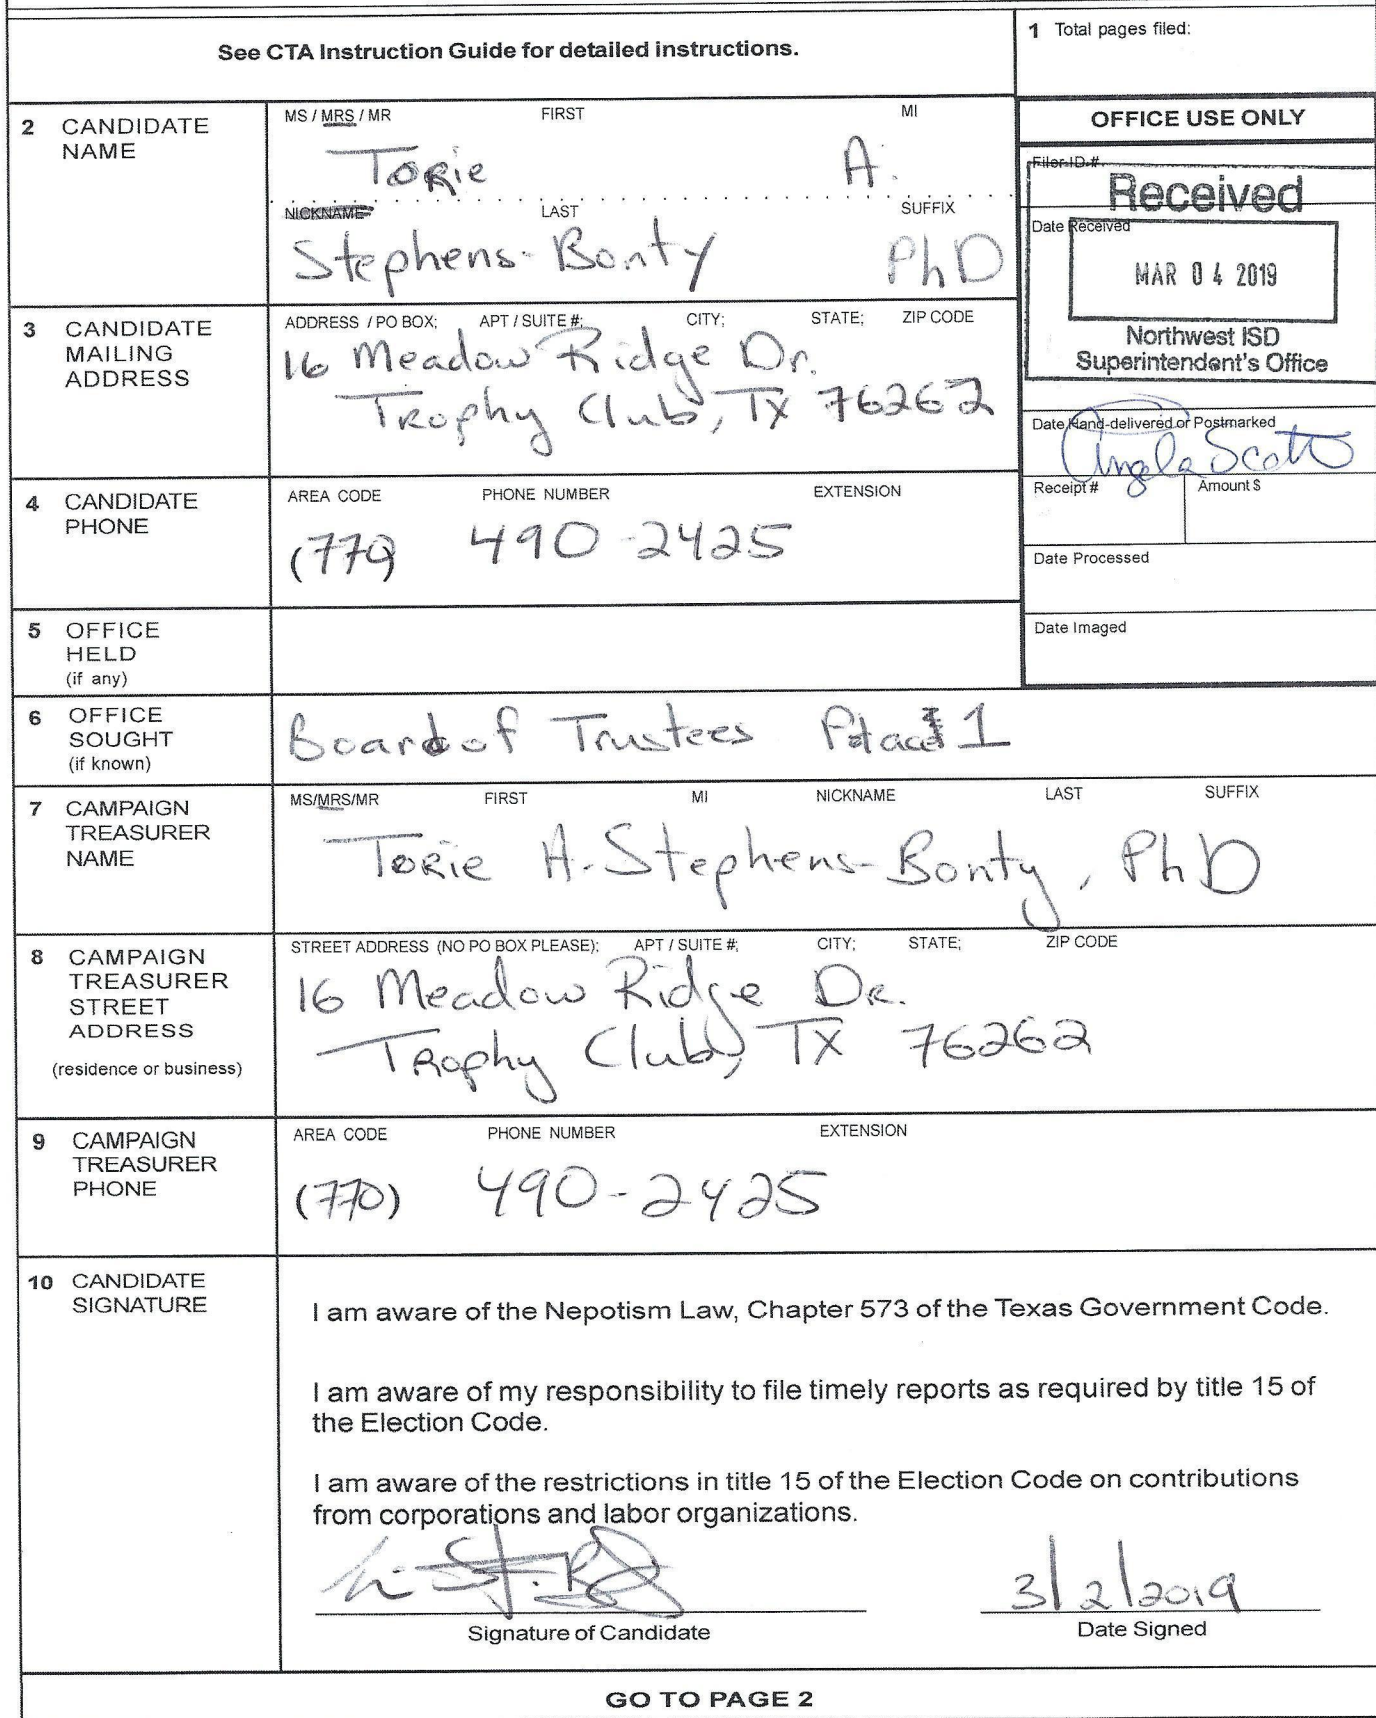 See CTA Instruction Guide for detailed instructions.
1 Total pages filed:
2 CANDIDATE NAME
MS / MRS / MR FIRST MI
Torie A.
NICKNAME LAST SUFFIX
Stephens-Bonty PhD
OFFICE USE ONLY
Filer ID #
Received
Date Received
MAR 04 2019
Northwest ISD
Superintendent's Office
Date Hand-delivered or Postmarked
Angela Scott
Receipt # Amount $
Date Processed
Date Imaged
3 CANDIDATE MAILING ADDRESS
ADDRESS / PO BOX; APT / SUITE #; CITY; STATE; ZIP CODE
16 Meadow Ridge Dr.
Trophy Club, TX 76262
4 CANDIDATE PHONE
AREA CODE PHONE NUMBER EXTENSION
(770) 490-2425
5 OFFICE HELD
(if any)
6 OFFICE SOUGHT
(if known)
Board of Trustees Place 1
7 CAMPAIGN TREASURER NAME
MS/MRS/MR FIRST MI NICKNAME LAST SUFFIX
Torie A. Stephens-Bonty, PhD
8 CAMPAIGN TREASURER STREET ADDRESS
(residence or business)
STREET ADDRESS (NO PO BOX PLEASE); APT / SUITE #; CITY; STATE; ZIP CODE
16 Meadow Ridge Dr.
Trophy Club, TX 76262
9 CAMPAIGN TREASURER PHONE
AREA CODE PHONE NUMBER EXTENSION
(770) 490-2425
10 CANDIDATE SIGNATURE
I am aware of the Nepotism Law, Chapter 573 of the Texas Government Code.
I am aware of my responsibility to file timely reports as required by title 15 of
the Election Code.
I am aware of the restrictions in title 15 of the Election Code on contributions
from corporations and labor organizations.
3/2/2019
Signature of Candidate Date Signed
GO TO PAGE 2